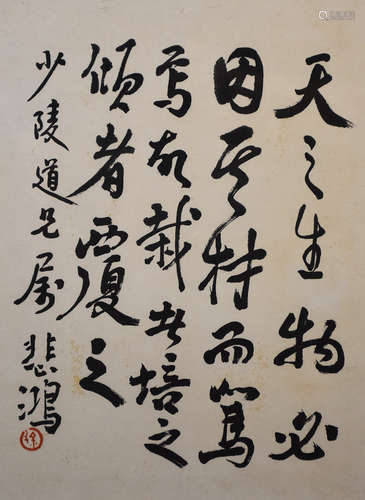 天之生物必
因其材而篤
焉故栽者培之
傾者覆之
少陵道兄屬
悲鴻
徐